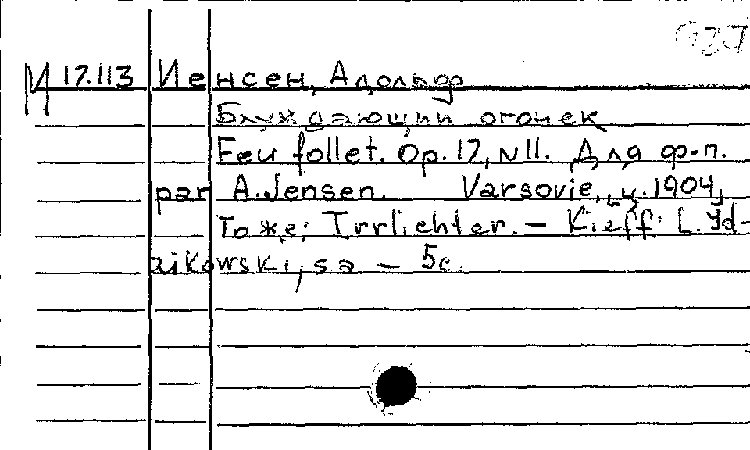 М 17.113 Иенсен, Адольф
Блуждающий огонек
Feu follet. Op. 17, N 11. Для ф-п.
par A. Jensen. Varsovie, ц. 1904,
То же: Irrlichter. – Kieff: L. Id-
zikowski, sa – 5с.